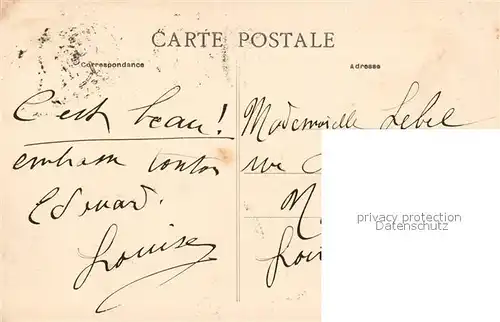 CARTE POSTALE
Correspondance
Adresse
C'est beau!
embrasse tonton
Edouard.
Louise
Mademoiselle Lebel
rue
privacy protection
Datenschutz